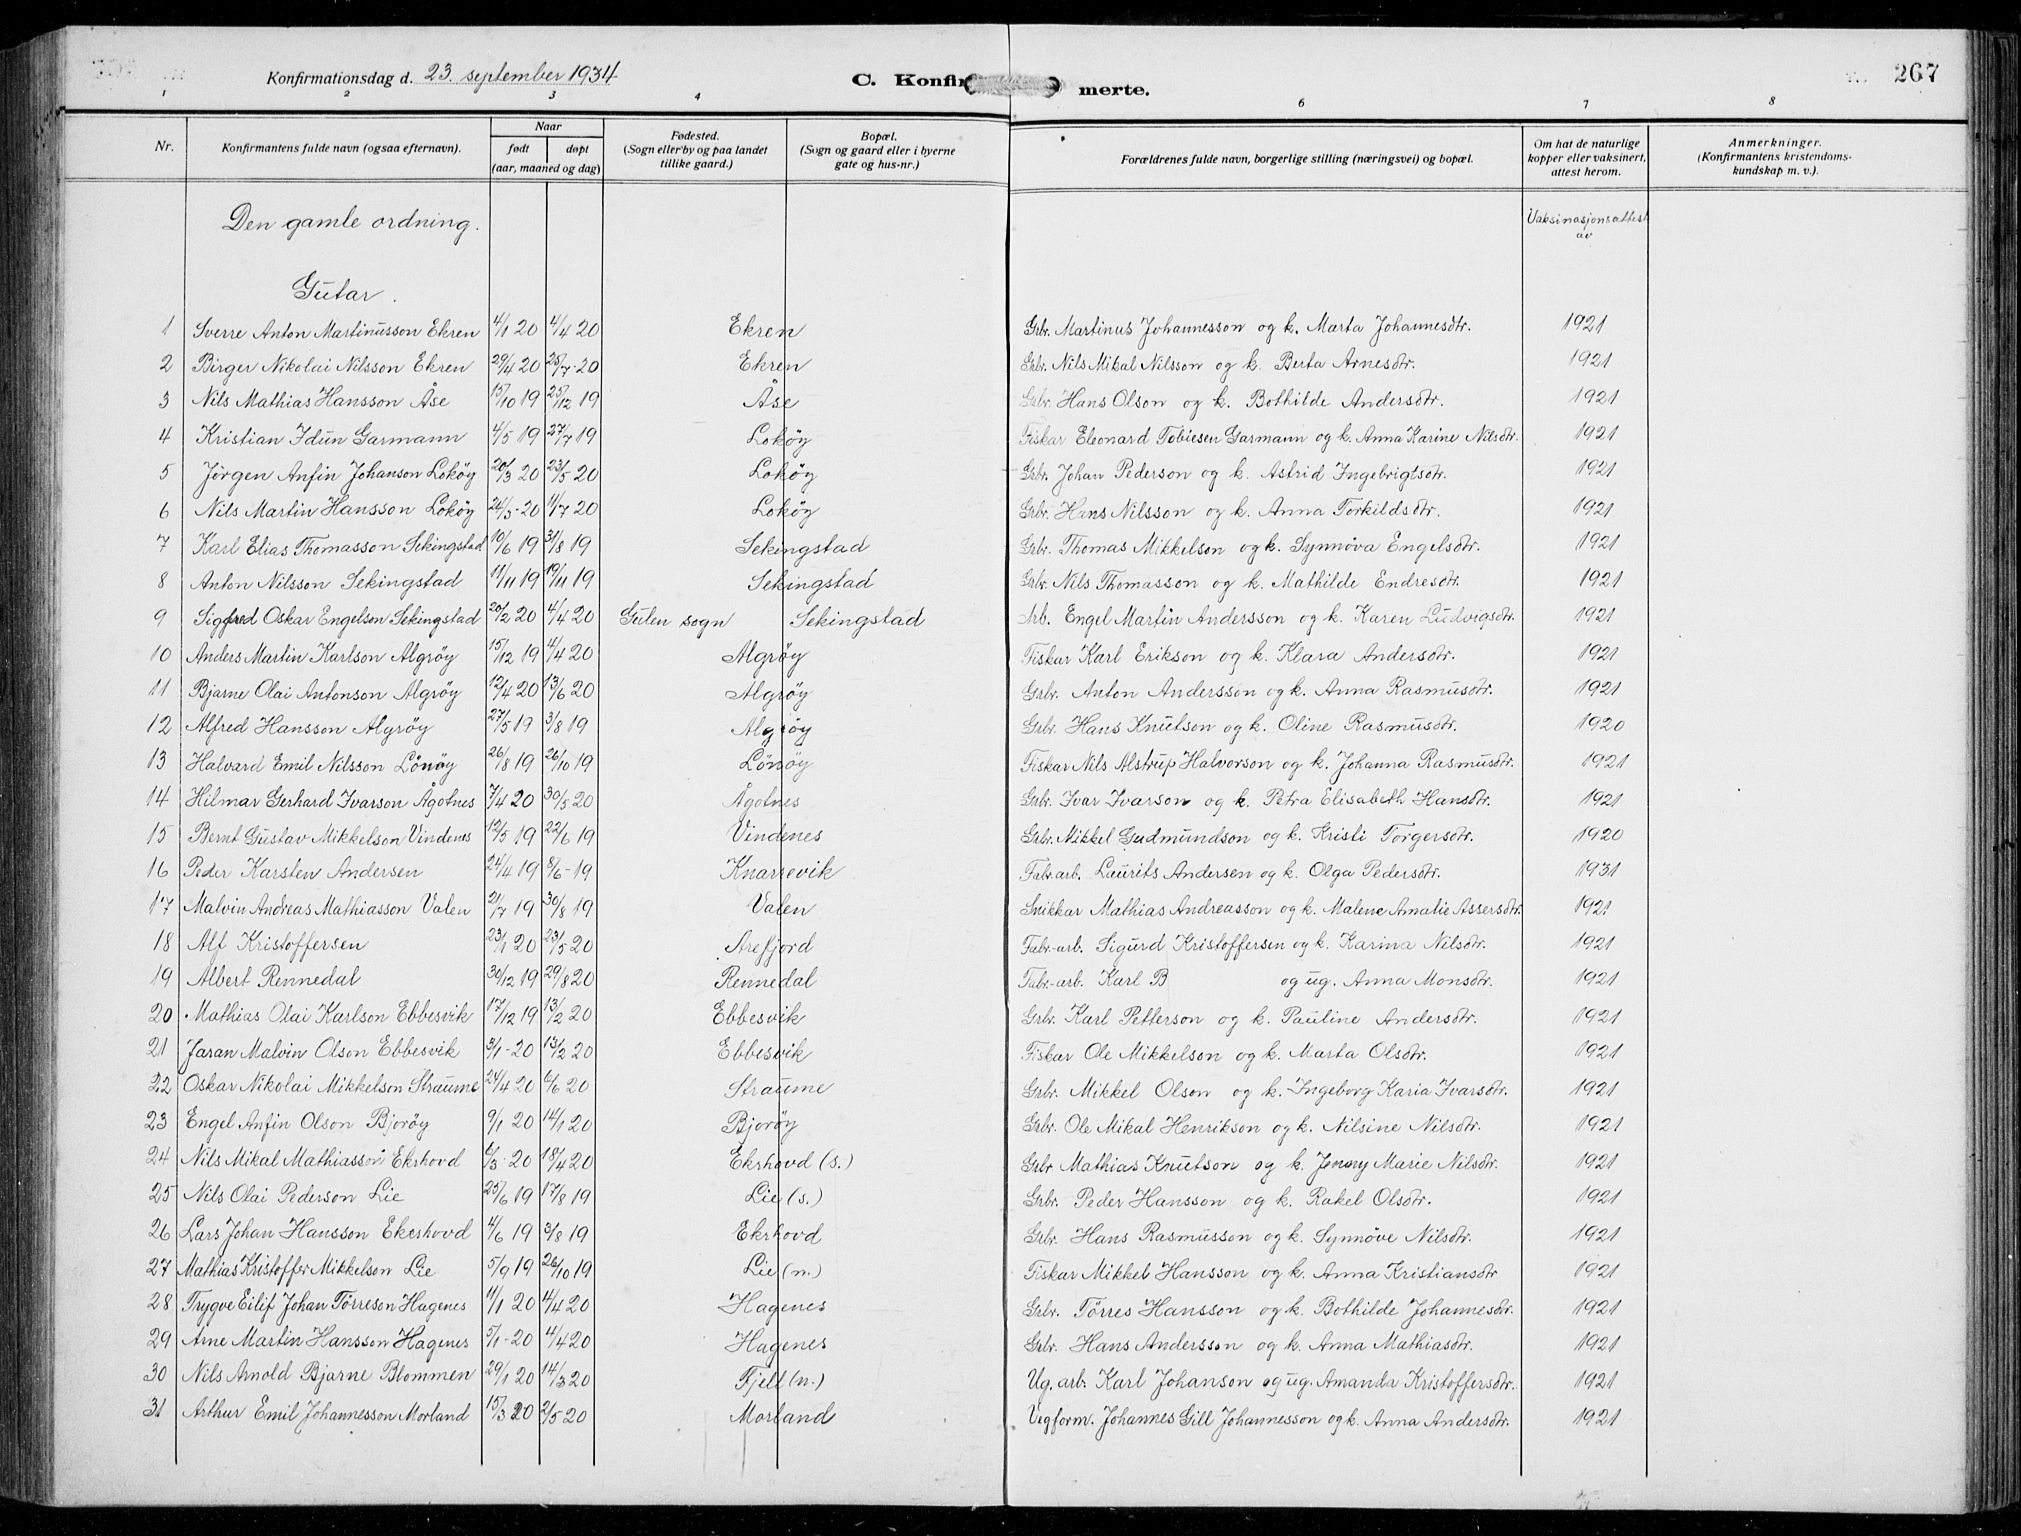 Konfirmationsdag d. 23. september 1934 C. Konfir merte. 267
1 2 3 4 6 7 8
Nr. Konfirmantens fulde navn (ogsaa efternavn). Naar født døpt (aar, maaned og dag) Fødested. (Sogn eller by og paa landet tillike gaard.) Bopæl. (Sogn og gaard eller i byerne gate og hus-nr.) Forældrenes fulde navn, borgerlige stilling (næringsvei) og bopæl. Om hat de naturlige kopper eller vaksinert, attest herom. Anmerkninger. (Konfirmantens kristendoms-kundskap m. v.).
Den gamle ordning. Vaksinasjonsattest av
Gutar.
1 Sverre Anton Martinusson Ekren 4/1 20 4/4 20 Ekren Grbr. Martinus Johannesson og k. Marta Johannesdtr. 1921
2 Birger Nikolai Nilsson Ekren 29/4 20 25/7-20 Ekren Grbr. Nils Mikal Nilsson og k. Berta Arnesdtr. 1921
3 Nils Mathias Hansson Åse 15/10 19 25/12 19 Åse Grbr. Hans Olson og k. Bothilde Andersdtr. 1921
4 Kristian Idun Garmann 4/5 19 27/7 19 Lokøy Fiskar Eleonard Tobiesen Garmann og k. Anna Karine Nilsdtr. 1921
5 Jørgen Anfin Johanson Lokøy 20/3 20 23/5 20 Lokøy Grbr. Johan Pederson og k. Astrid Ingebrigtsdtr. 1921
6 Nils Martin Hansson Lokøy 24/5-20 11/7 20 Lokøy Grbr. Hans Nilsson og k. Anna Torkildsdtr. 1921
7 Karl Elias Thomasson Sekingstad 10/6 19 31/8 19 Sekingstad Grbr. Thomas Mikkelson og k. Synnøva Engelsdtr. 1921
8 Anton Nilsson Sekingstad 11/11 19 19/11 19 Sekingstad Grbr. Nils Thomasson og k. Mathilde Endresdtr. 1921
9 Sigfred Oskar Engelson Sekingstad 20/2 20 4/4 20 Gulen sogn Sekingstad Arb. Engel Martin Andersson og k. Karen Ludvigsdtr. 1921
10 Anders Martin Karlson Algrøy 15/12 19 4/4 20 Algrøy Fiskar Karl Erikson og k. Klara Andersdtr. 1921
11 Bjarne Olai Antonson Algrøy 12/4 20 13/6 20 Algrøy Grbr. Anton Andersson og k. Anna Rasmusdtr. 1921
12 Alfred Hansson Algrøy 27/5 19 3/8 19 Algrøy Grbr. Hans Knutson og k. Oline Rasmusdtr. 1920
13 Halvard Emil Nilsson Lönøy 26/8 19 26/10 19 Lönöy Fiskar Nils Alstrup Halvorson og k. Johanna Rasmusdtr. 1921
14 Hilmar Gerhard Ivarson Ågotnes 7/4 20 30/5 20 Ågotnes Grbr. Ivar Ivarson og k. Petra Elisabeth Hansdtr. 1921
15 Bernt Gustav Mikkelson Vindenes 12/5 19 22/6 19 Vindenes Grbr. Mikkel Gudmundson og k. Kristi Torgersdtr. 1920
16 Peder Karsten Andersen 24/4 19 8/6-19 Knarrevik Fabr.arb. Laurits Andersen og k. Olga Pedersdtr. 1931
17 Malvin Andreas Mathiasson Valen 21/7 19 30/8 19 Valen Snikkar Mathias Andreasson og k. Malene Amalie Assersdtr. 1921
18 Alf Kristoffersen 23/1 20 23/5 20 Arefjord Fabr.-arb. Sigurd Kristoffersen og k. Karina Nilsdtr. 1921
19 Albert Rennedal 30/12 19 29/8 20 Rennedal Fabr.-arb. Karl B og ug. Anna Monsdtr. 1921
20 Mathias Olai Karlson Ebbesvik 17/12 19 13/2 20 Ebbesvik Grbr. Karl Petterson og k. Pauline Andersdtr. 1921
21 Jaran Malvin Olson Ebbesvik 3/1-20 13/2 20 Ebbesvik Fiskar Ole Mikkelson og k. Marta Olsdtr. 1921
22 Oskar Nikolai Mikkelson Straume 24/4 20 6/6 20 Straume Grbr. Mikkel Olson og k. Ingeborg Karia Ivarsdtr. 1921
23 Engel Anfin Olson Bjorøy 9/1 20 14/1 20 Bjorøy Grbr. Ole Mikal Henrikson og k. Nilsine Nilsdtr. 1921
24 Nils Mikal Mathiasson Ekrhovd 6/3-20 18/4 20 Ekrhovd (s.) Grbr Mathias Knutson og k. Jenny Marie Nilsdtr. 1921
25 Nils Olai Pederson Lie 25/6 19 17/8 19 Lie (s.) Grbr. Peder Hansson og k. Rakel Olsdtr. 1921
26 Lars Johan Hansson Ekerhovd 4/6 19 3/8 19 Ekrhovd Grbr. Hans Rasmusson og k. Synnöve Nilsdtr. 1921
27 Mathias Kristoffer Mikkelson Lie 5/9 19 26/10 19 Lie (n.) Fiskar Mikkel Hansson og k. Anna Kristiansdtr 1921
28 Trygve Eilif Johan Törreson Hagenes 11/1 20 4/4 20 Hagenes Grbr. Törres Hansson og k. Bothilde Johannesdtr. 1921
29 Arne Martin Hansson Hagenes 5/1-20 4/4 20 Hagenes Grbr. Hans Andersson og k. Anna Mathiasdtr. 1921
30 Nils Arnold Bjarne Blommen 29/1 20 14/3 20 Fjell (n.) Ug. arb. Karl Johanson og ug. Amanda Kristoffersdtr. 1921
31 Arthur Emil Johannesson Morland 15/3 20 2/5 20 Morland Vegform. Johannes Gill Johannesson og k. Anna Andersdtr. 1921